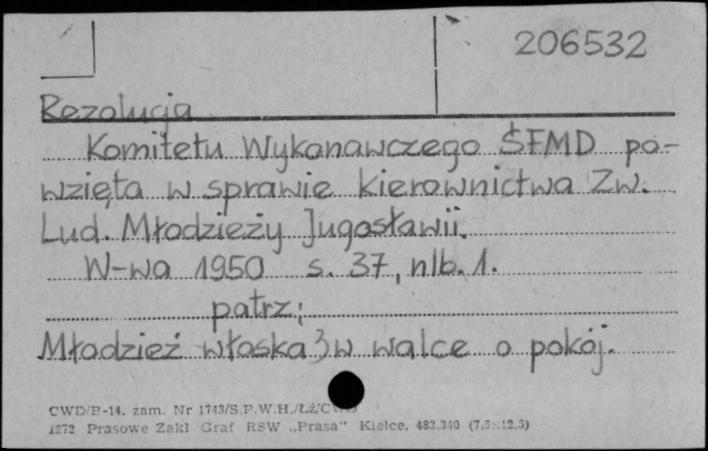 206532
Rezolucja
Komitetu Wykonawczego ŚFMD po-
wzięta w sprawie kierownictwa Zw.
Lud. Młodzieży Jugosławii.
W-wa 1950 s. 37, nlb. 1.
patrz:
Młodzież włoska } w walce o pokój.
CWD/B-14. zam. Nr 1743/S.P.W.H./ŁŻ/
1272 Prasowe Zakł Graf RSW „Prasa" Kielce, 483.340 (7,5×12,5)